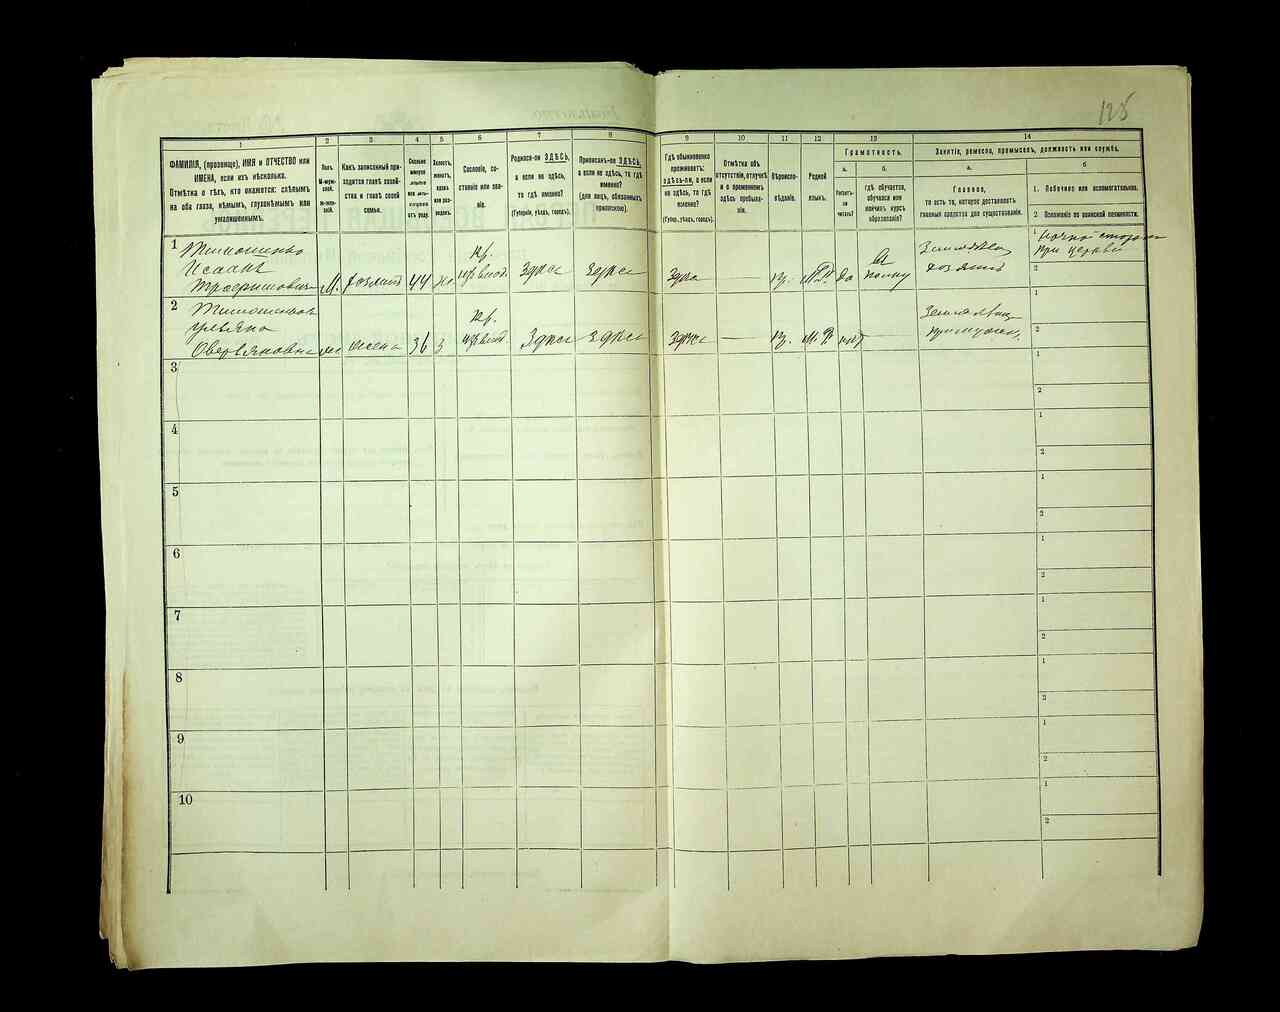 125
1
2
3
4
5
6
7
8
9
10
11
12
13
14
ФАМИЛІЯ, (прозвище), ИМЯ и ОТЧЕСТВО или
ИМЕНА, если ихъ нѣсколько.
Отмѣтка о тѣхъ, кто окажется: слѣпымъ
на оба глаза, нѣмымъ, глухонѣмымъ или
умалишеннымъ.
Полъ.
М-муж-
ской.
Ж-жен-
скій.
Какъ записанный при-
ходится главѣ хозяй-
ства и главѣ своей
семьи.
Сколько
минуло
лѣтъ
или мѣся-
цевъ
отъ роду.
Холостъ,
женатъ,
вдовъ
или раз-
веденъ.
Сословіе, со-
стояніе или зва-
ніе.
Родился-ли ЗДѢСЬ,
а если не здѣсь,
то гдѣ именно?
(Губернія, уѣздъ, городъ).
Приписанъ-ли ЗДѢСЬ,
а если не здѣсь, то гдѣ
именно?
(для лицъ, обязанныхъ
припискою).
Гдѣ обыкновенно
проживаетъ:
здѣсь-ли, а если
не здѣсь, то гдѣ
именно?
(Губер., уѣздъ, городъ).
Отмѣтка объ
отсутствіи, отлучкѣ
и о временномъ
здѣсь пребыва-
ніи.
Вѣроиспо-
вѣданіе.
Родной
языкъ.
Грамотность.
а.
б.
Умѣетъ-
ли
читать?
гдѣ обучается,
обучался или
кончилъ курсъ
образованія?
Занятіе, ремесло, промыселъ, должность или служба.
а.
б
Главное,
то есть то, которое доставляетъ
главныя средства для существованія.
1. Побочное или вспомогательное.
2 Положеніе по воинской повинности.
1
Тимошенко
Исаакъ
Трофимовичъ
М.
хозяинъ
44
ж.
кр.
изъ влад.
Здѣсь
Здѣсь
Здѣсь
—
пр.
М.Р.
да
въ
полку
Земледѣл.
хозяинъ
1
ночной сторож
при церкви
2
2
Тимошенкова
Ульяна
Оверьяновна
ж
жена
36
з
кр.
изъ влад.
Здѣсь
Здѣсь
Здѣсь
—
пр.
М.Р
нѣт
—
Земледѣлиц
при мужѣ
1
2
3
1
2
4
1
2
5
1
2
6
1
2
7
1
2
8
1
2
9
1
2
10
1
2